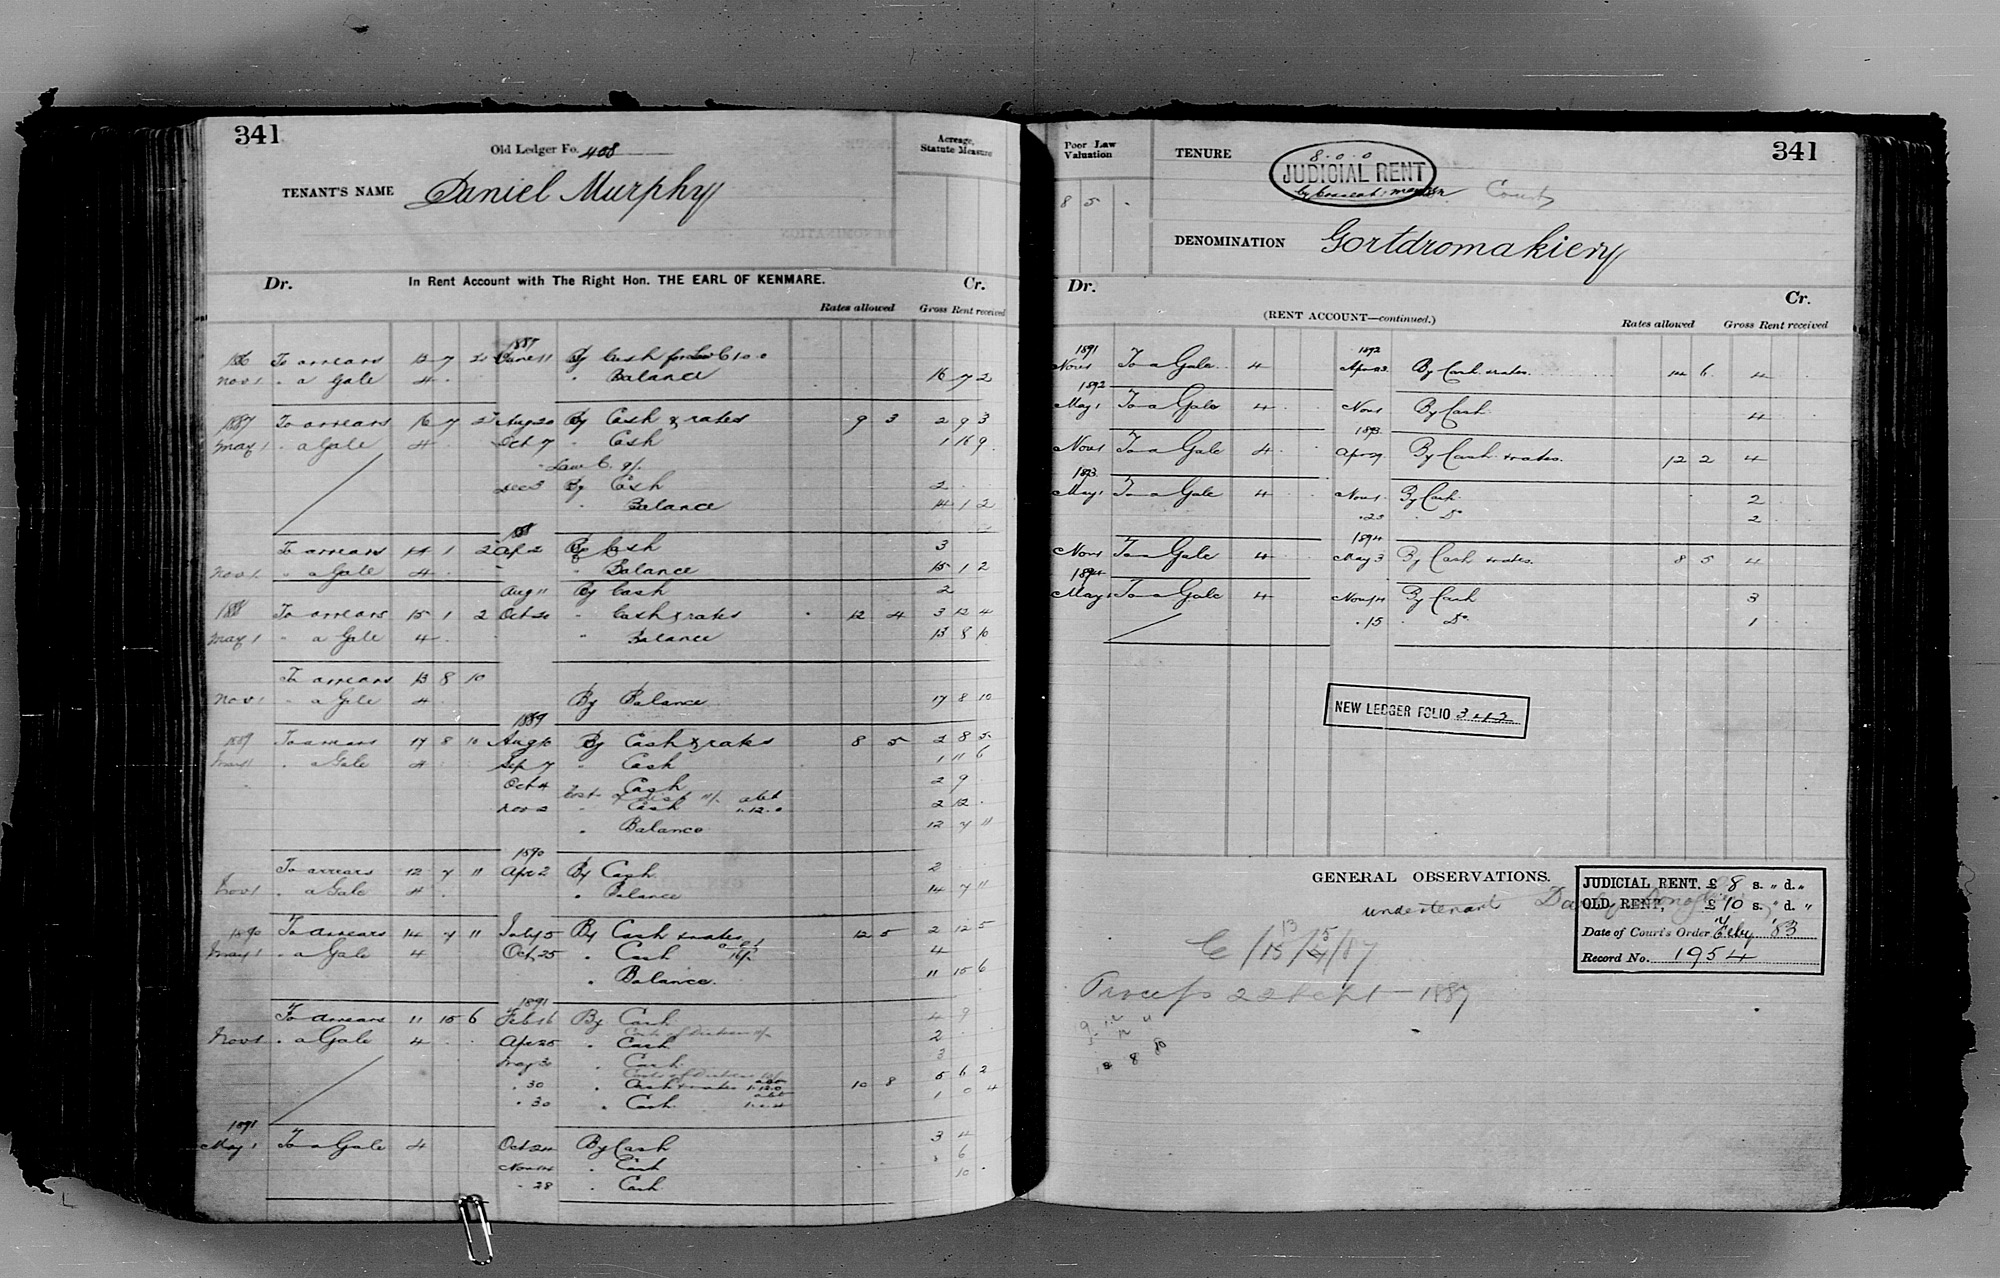 341
Old Ledger Fo. 408
TENANT'S NAME Daniel Murphy
Acreage, Statute Measure
Dr. In Rent Account with The Right Hon. THE EARL OF KENMARE. Cr.
Rates allowed Gross Rent received
1887
To arrears 13 7 2 June 11 By Cash for Law C 10.0
Nov 1 " a Gale 4 " Balance 16 7 2
1887 To arrears 16 7 2 Aug 20 By Cash & rates 9 3 2 9 3
May 1 " a Gale 4 Oct 7 " Cash 1 16 9
Law C.
Dec 3 By Cash 2
" Balance 14 1 2
1888
To arrears 14 1 2 Ap 2 By Cash 3
Nov 1 " a Gale 4 " Balance 15 1 2
Aug 11 By Cash 2
1888 To arrears 15 1 2 Oct 20 " Cash & rates 12 4 3 12 4
May 1 " a Gale 4 " Balance 13 8 10
To arrears 13 8 10
Nov 1 " a Gale 4 By Balance 17 8 10
1889
1889 To arrears 17 8 10 Aug 10 By Cash & rates 8 5 2 8 5
May 1 " a Gale 4 Sep 7 " Cash 1 11 6
Oct 4 " Cash 2 9
Nov 2 " Cash 1.12.0 2 12
" Balance 12 7 11
1890
To arrears 12 7 11 Apr 2 By Cash 2
Nov 1 " a Gale 4 " Balance 14 7 11
1890 To arrears 14 7 11 July 5 By Cash & rates 12 5 2 12 5
May 1 " a Gale 4 Oct 25 " Cash 4
" Balance 11 15 6
1891
To arrears 11 15 6 Feb 16 By Cash 4 9
Nov 1 " a Gale 4 Apr 25 " Cash 2
May 30 " Cash 3
" 30 " Cash & rates 10 8 5 6 2
" 30 " Cash 1 0 4
1891
May 1 To a Gale 4 Oct 24 By Cash 3 4
Nov 14 " Cash 6
" 28 " Cash 10
341
Poor Law Valuation
8 5 -
TENURE 8.0.0
JUDICIAL RENT
County
DENOMINATION Gortdromakiery
Dr. Cr.
(RENT ACCOUNT—continued.)
Rates allowed Gross Rent received
1891 1892
Nov 1 To a Gale 4 Apr 23 By Cash & rates 14 6 4
1892
May 1 To a Gale 4 Nov 1 By Cash 4
1893
Nov 1 To a Gale 4 Apr 29 By Cash & rates 12 2 4
1893
May 1 To a Gale 4 Nov 1 By Cash 2
" 23 " Do 2
1894
Nov 1 To a Gale 4 May 3 By Cash & rates 8 5 4
1894
May 1 To a Gale 4 Nov 14 By Cash 3
" 15 " Do 1
NEW LEDGER FOLIO 342
GENERAL OBSERVATIONS.
undertenant
JUDICIAL RENT. £ 8 s. " d. "
OLD RENT, £ 10 s. " d. "
Date of Court's Order Feby '83
Record No. 1954
Process 22 Sept — 1887